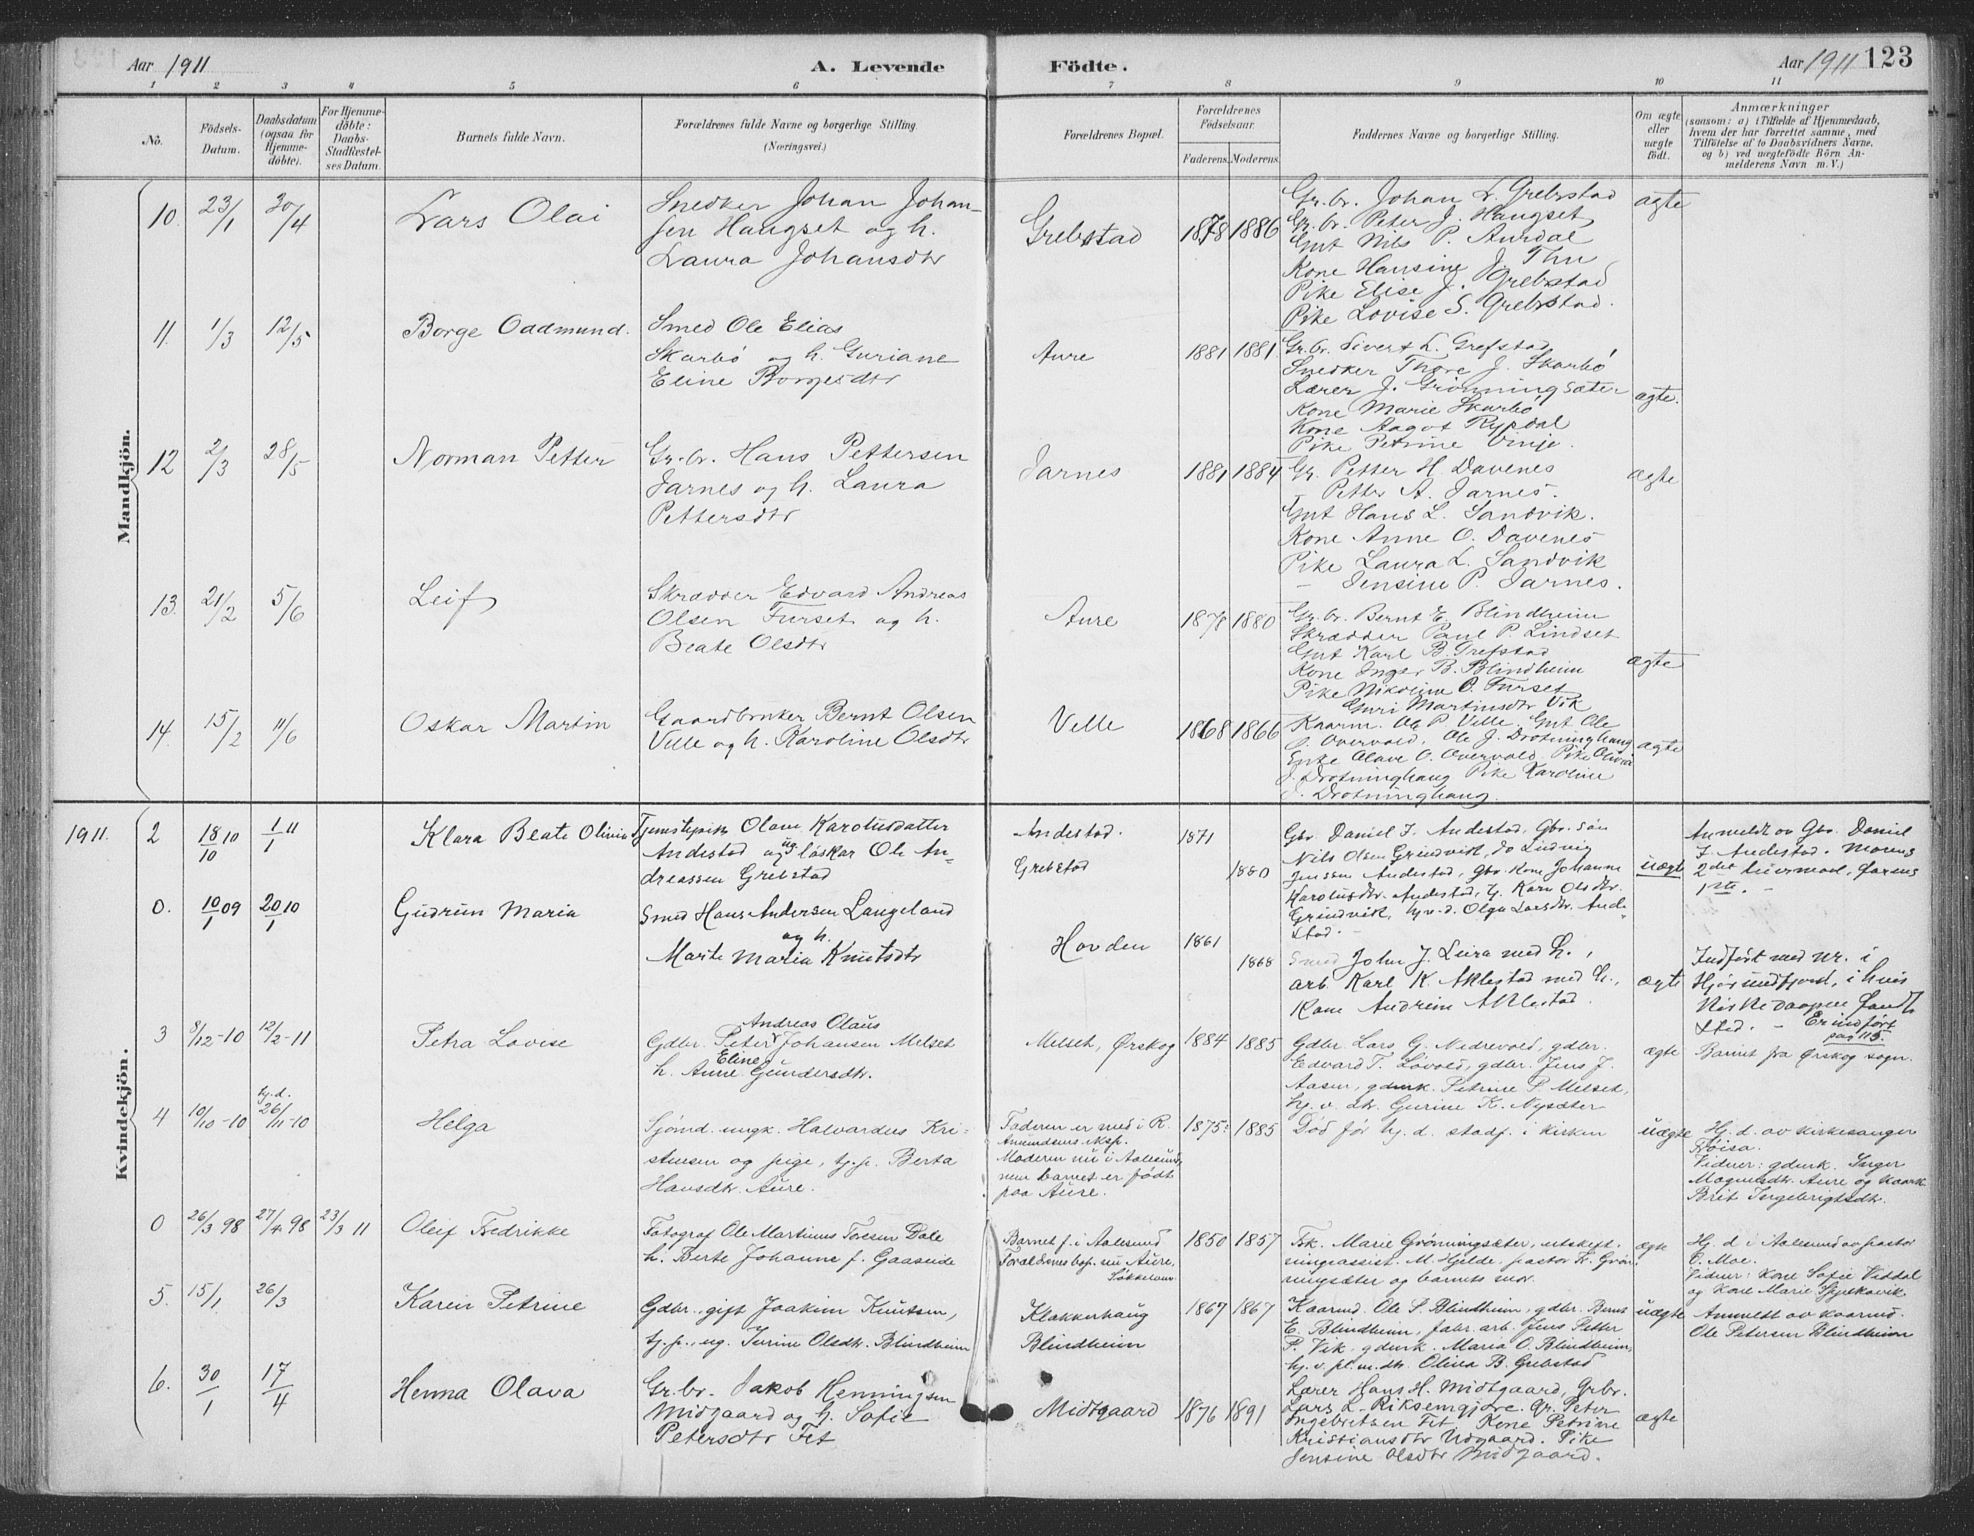 Aar 1911
A. Levende
Födte.
Aar 1911
123
1 2 3 4 5 6 7 8 9 10 11
No.
Födsels-
Datum.
Daabsdatum
(ogsaa for
Hjemme-
døbte).
For Hjemme-
døbte:
Daabs-
Stadfæstel-
ses Datum.
Barnets fulde Navn.
Forældrenes fulde Navne og borgerlige Stilling.
(Næringsvei.)
Forældrenes Bopæl.
Forældrenes
Födselsaar.
Faderens. Moderens.
Faddernes Navne og borgerlige Stilling.
Om ægte
eller
uægte
født.
Anmærkninger
(saasom: a) i Tilfælde af Hjemmedaab,
hvem der har forrettet samme, med
Tilföielse af to Daabsvidners Navne,
og b) ved uægtefödte Börn An-
melderens Navn m. V.)
Mandkjön.
10 23/1 30/4 Lars Olai
Snedker Johan Johan-
sen Haugset og h.
Laura Johansdtr
Grebstad 1878 1886
Gr.br. Johan L. Grebstad
Gr.br. Peter J. Haugset
Gut Nils P. Aurdal
Kone Hansine J. Thu
Pike Elise J. Grebstad
Pike Lovise S. Grebstad.
ægte
11. 1/3 12/5 Borge Oadmund.
Smed Ole Elias
Skarbø og h. Guriane
Eline Borgesdtr
Aure 1881 1881.
Gr.br. Sivert L. Grefstad
Snedker Thore J. Skarbø
Lærer J. Grönningsæter
Kone Marie Skarbø
Kone Aagot Rypdal
Pike Petrine Vinje.
ægte.
12 2/3 28/5 Norman Petter
Gr.br. Hans Pettersen
Jarnes og h. Laura
Pettersdtr
Jarnes 1881 1884
Gr. Petter H. Davenes
– Petter A. Jarnes.
Gut Hans L. Sandvik.
Kone Anne O. Davenes
Pike Laura L. Sandvik
– Jensine P. Jarnes.
ægte
13. 21/2 5/6 Leif
Skrædder Edvard Andreas
Olsen Furset og h.
Beate Olsdtr
Aure 1878 1880
Gr.br. Bernt E. Blindheim
Skrædder Paul P. Lindset
Gut Karl B. Grefstad
Kone Inger B. Blindheim
Pike Nikoline O. Furset
Guri Martinsdtr Vik
ægte
14. 15/2 11/6 Oskar Martin
Gaardbruker Bernt Olsen
Velle og h. Karoline Olsdtr
Velle 1868 1866
Kaarm. Ole P. Velle. Gut Ole
O. Overvold. Ole J. Drotninghaug
Enke Olave O. Overvold. Pike Olivia
J. Drotninghaug Pike Karoline
J. Drotninghaug.
ægte
Kvindekjön.
1911. 2 18/10 10 1/1 11 Klara Beate Olivia
Tjenestepike Olave Karolusdatter
Andestad og ug. løskar Ole An-
dreassen Grebstad
Andestad.
Grebstad
1871
1880
Gbr. Daniel J. Andestad, Gbr. søn
Nils Olsen Grindvik, do Ludvig
Jenssen Andestad, gbr. Kone Johanne
Karolusdtr. Andestad, Kari Olsdtr.
Grindvik, hv.d. Olga Larsdtr. Ande-
stad.
uægte
Anmeldt av Gbr. Daniel
J. Andestad. Morens
2det leiermaal, farens
1ste.
0. 10/1 09 20/1 10 Gudrun Maria
Smed Hans Andersen Langeland
og h.
Marte Maria Knutsdtr
Hovden 1861
1868
Smed John J. Leira med h.,
arb. Karl K. Aklestad med h.,
Kone Andrine Aklestad.
ægte
Indført med nr. i
Hjørundfjord, i hvis
kirke daapen fandt
sted. – Er indført
pag 115.
3 8/12-10 12/2-11 Petra Lovise
Andreas Olaus
Gdbr. Peter Johansen Melset
Eline
h. Anne Gundersdtr.
Melset, Ørskog 1884 1885
Gdbr. Lars G. Nedrevold, gdbr.
Edvard T. Løvold, gdbr. Jens J.
Aasen, gdmk. Petrine P. Melset,
hj. v. dtr. Gurine K. Nysæter
ægte Barnet fra Ørskog sogn.
4 10/10-10 hj.d. 26/11-10 Helga
Sjømd. ungk. Halvardus Kri-
stensen og pige, tj.p. Berta
Hansdtr. Aure.
Faderen er med i R.
Amundsens eksp.
Moderen nu i Aalesund,
men barnet er født
paa Aure.
1875: 1885
Død før hj. d. stadf. i kirken
uægte
Hj. d. av kirkesanger
Røisa.
Vidner: gdmk. Inger
Magnesdtr. Aure og kaark.
Brit Ingebrigtsdtr.
0 26/3 98 27/4 98 23/3 11 Oleif Fredrikke
Fotograf Ole Martinus Toresen Dale
h. Berte Johanne f. Gaaseide
Barnet f. i Aalesund
Forældrenes bop. nu Aure,
Søkkelven
1850 1857
Frk. Marie Grønningsæter, utskift-
ningsassist. M. Hjelde, pastor K. Grøn-
ningsæter og barnets mor.
ægte
Hj. d. i Aalesund av pastor
O. Moe.
Vidner: Kone Sofie Viddal
og Kone Marie Skjelkavik
5. 15/1 26/3 Karen Petrine
Gdbr., gift Joakim Knutsen,
tj.p., ug. Jurine Olsdtr. Blindheim
Klokkerhaug
Blindheim
1867 1867
Kaarmd. Ole S. Blindheim, gdbr. Bernt
E. Blindheim, fabr. arb. Jens Petter
P. Vik, gdmk. Maria O. Blindheim,
hj. v. pl. m. dtr. Oliva B. Grebstad
uægte
Anmeldt av kaarmd.
Ole Petersen Blindheim
6. 30/1 17/4 Henna Olava
Gr.br. Jakob Henningsen
Midgaard og h. Sofie
Petersdtr Fet
Midtgaard 1876 1891
Lærer Hans H. Midtgaard, Gr.br.
Lars L. Riksemgjore. Gr. Peter
Ingebretsen Fet. Kone Petrine
Kristiansdtr Udgaard. Pike
Jensine Olsdtr Midgaard.
ægte